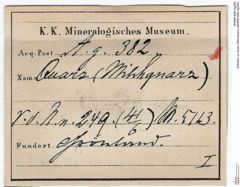 K. K. Mineralogisches Museum.
Acq.-Post A. g. 382.
Nam Quarz (Milchquarz)
249.
Fundort. Grönland.
I